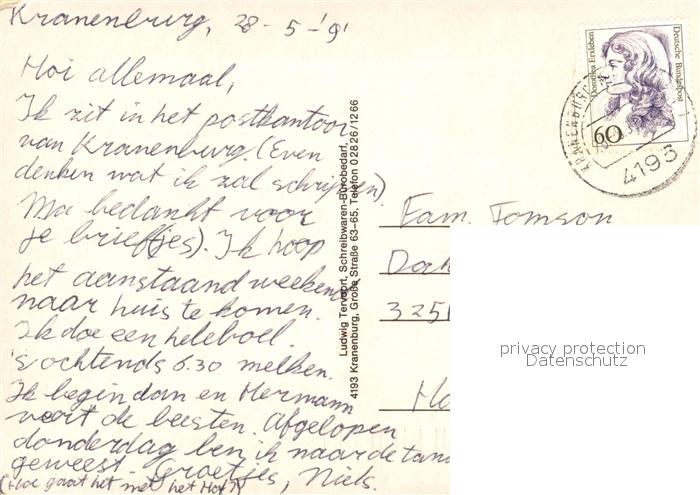 Kranenburg, 28-5-'91
Hoi allemaal,
Ik zit in het postkantoor
van Kranenburg. (Even
denken wat ik zal schrijven).
Ma bedankt voor
je brief(jes). Ik hoop
het aanstaand weekend
naar huis te komen.
Ik doe een heleboel.
's ochtends 6.30 melken.
Ik begin dan en Hermann
voert de beesten. Afgelopen
donderdag ben ik naar de tand
geweest. Groetjes, Niels.
(Hoe gaat het met het Hof?)
Ludwig Tervoort, Schreibwaren-Bürobedarf,
4193 Kranenburg, Große Straße 63-65, Telefon 02826/1266
Deutsche Bundespost
Dorothea Erxleben
60
KRANENBURG
4193
Fam. Tomson
3251
privacy protection
Datenschutz